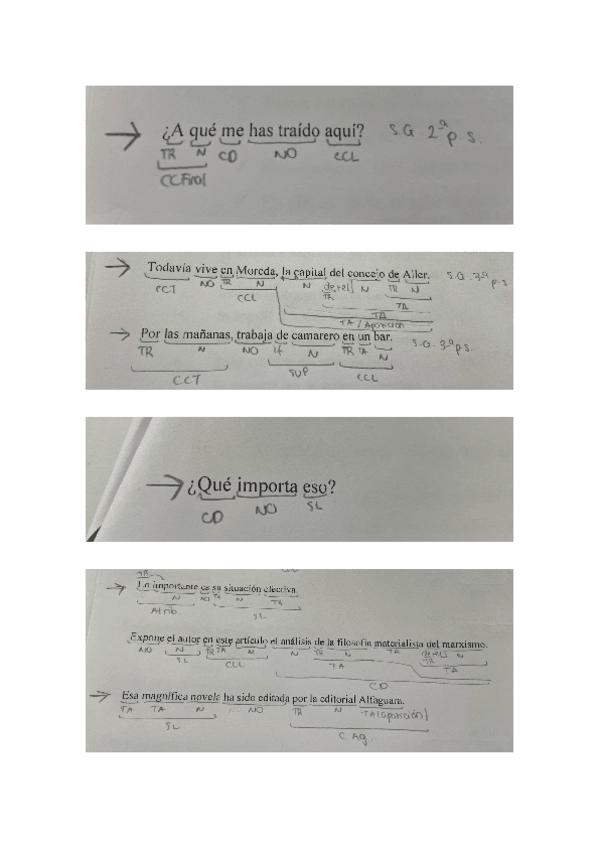 ¿A qué me has traído aquí? S.G. 2ª p.s.
TR N CD NO CCL
CCFinal
Todavía vive en Moreda, la capital del concejo de Aller. S.G. 3ª p.s
CCT NO TR N N de+el N TR N
CCL TR TA
TA
TA / Aposición
Por las mañanas, trabaja de camarero en un bar. S.G. 3ª p.s.
TR N NO N TR TA N
CCT SUP CCL
¿Qué importa eso?
CD NO SL
TA
Lo importante es su situación efectiva.
N NO TA N TA
Atrib SL
Expone el autor en este artículo el análisis de la filosofía materialista del marxismo.
NO N TR TA N N TR N TA de+el N
SL CCL TA TR TA
CD
Esa magnífica novela ha sido editada por la editorial Alfaguara.
TA TA N NO TR N TA (aposición)
SL C. Ag.